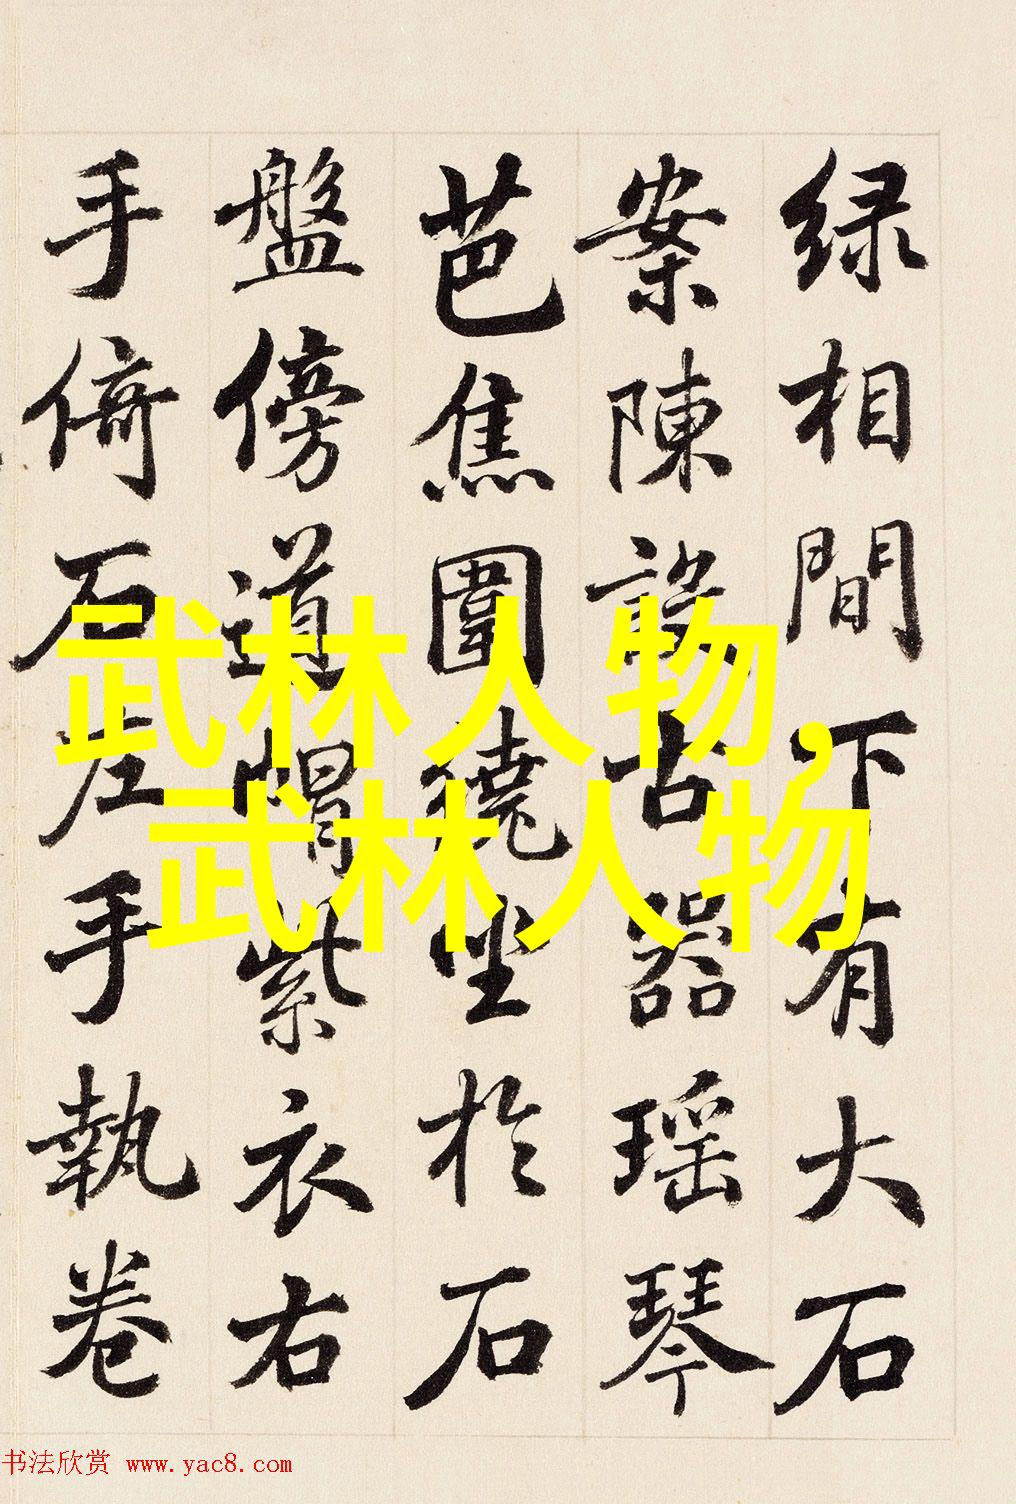 绿相間下有大石
案陳設古器瑶琴
芭焦圍繞坐於石
盤傍道帽紫衣右
手倚石左手執卷
武林人物,
武林人物
书法欣赏 www.yac8.com